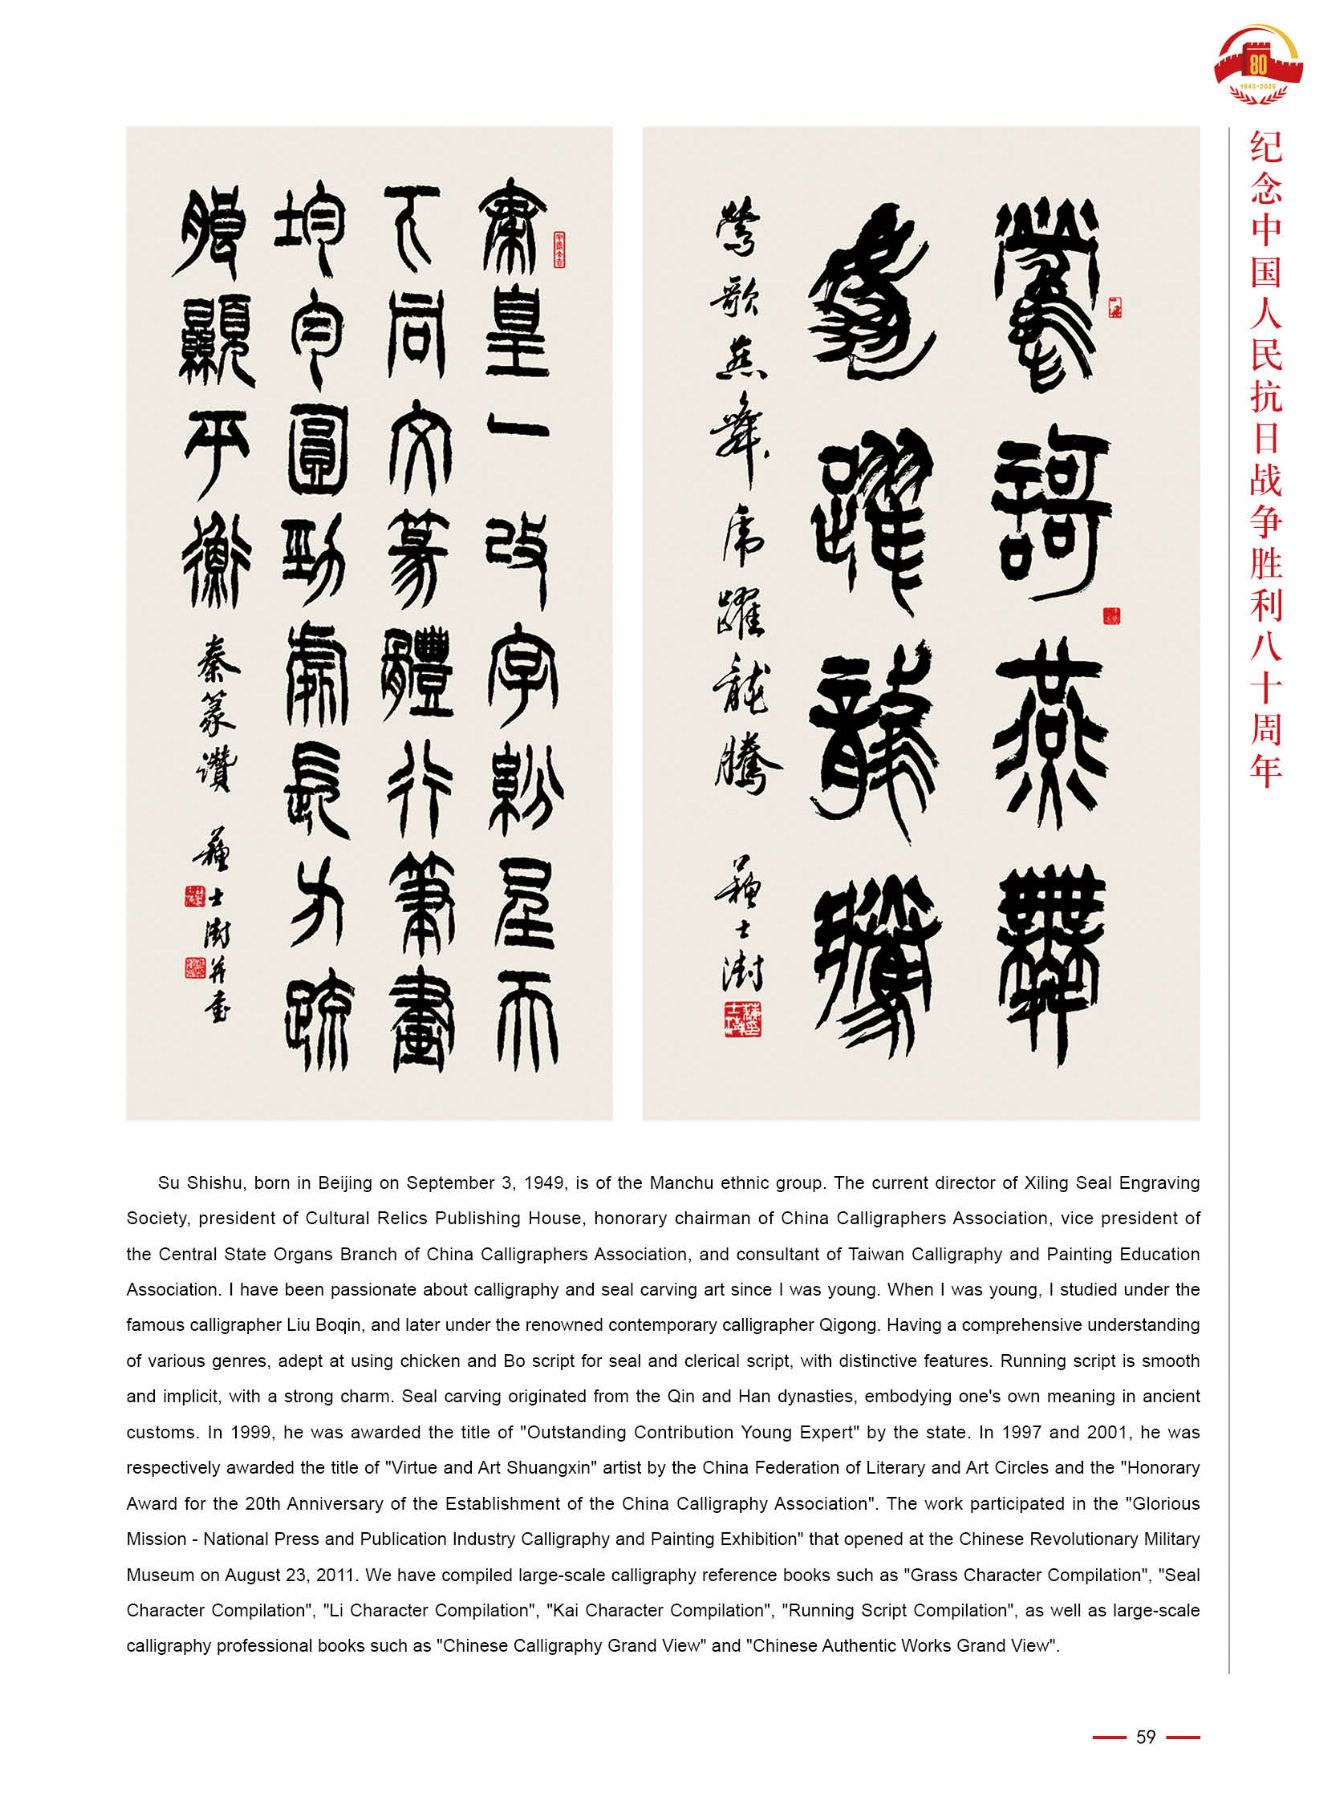 80
1945-2025
纪念中国人民抗日战争胜利八十周年
鶯謌燕舞
虎躍龍騰
鶯歌燕舞虎躍龍騰 蘇士澍
秦皇一改字紛呈天
下同文篆體行筆畫
均勻圓勁處長方疏
朗顯平衡 秦篆讚 蘇士澍并書
Su Shishu, born in Beijing on September 3, 1949, is of the Manchu ethnic group. The current director of Xiling Seal Engraving
Society, president of Cultural Relics Publishing House, honorary chairman of China Calligraphers Association, vice president of
the Central State Organs Branch of China Calligraphers Association, and consultant of Taiwan Calligraphy and Painting Education
Association. I have been passionate about calligraphy and seal carving art since I was young. When I was young, I studied under the
famous calligrapher Liu Boqin, and later under the renowned contemporary calligrapher Qigong. Having a comprehensive understanding
of various genres, adept at using chicken and Bo script for seal and clerical script, with distinctive features. Running script is smooth
and implicit, with a strong charm. Seal carving originated from the Qin and Han dynasties, embodying one's own meaning in ancient
customs. In 1999, he was awarded the title of "Outstanding Contribution Young Expert" by the state. In 1997 and 2001, he was
respectively awarded the title of "Virtue and Art Shuangxin" artist by the China Federation of Literary and Art Circles and the "Honorary
Award for the 20th Anniversary of the Establishment of the China Calligraphy Association". The work participated in the "Glorious
Mission - National Press and Publication Industry Calligraphy and Painting Exhibition" that opened at the Chinese Revolutionary Military
Museum on August 23, 2011. We have compiled large-scale calligraphy reference books such as "Grass Character Compilation", "Seal
Character Compilation", "Li Character Compilation", "Kai Character Compilation", "Running Script Compilation", as well as large-scale
calligraphy professional books such as "Chinese Calligraphy Grand View" and "Chinese Authentic Works Grand View".
59